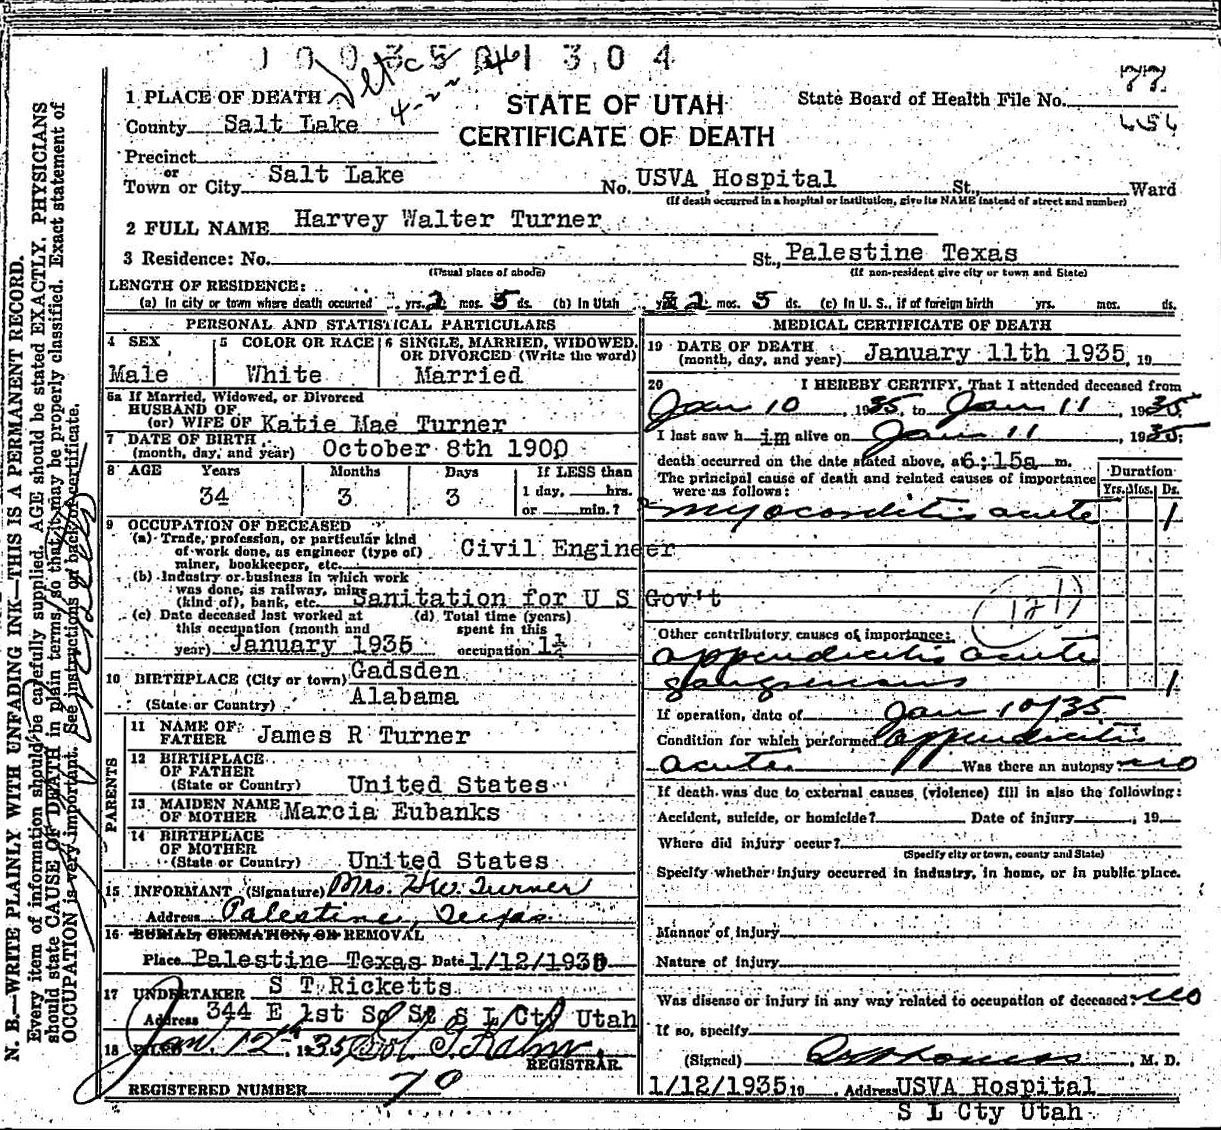 1 0 0 3 5 0 1 3 0 4
4-22-46
77
STATE OF UTAH
CERTIFICATE OF DEATH
State Board of Health File No.
1 PLACE OF DEATH
County Salt Lake
Precinct
or
Town or City Salt Lake No. USVA Hospital St., Ward
(If death occurred in a hospital or institution, give its NAME instead of street and number)
2 FULL NAME Harvey Walter Turner
3 Residence: No. St., Palestine Texas
(Usual place of abode) (If non-resident give city or town and State)
LENGTH OF RESIDENCE:
(a) In city or town where death occurred yrs. 2 mos. 5 ds. (b) In Utah yrs. 2 mos. 5 ds. (c) In U. S., if of foreign birth yrs. mos. ds.
PERSONAL AND STATISTICAL PARTICULARS
4 SEX
Male
5 COLOR OR RACE
White
6 SINGLE, MARRIED, WIDOWED, OR DIVORCED (Write the word)
Married
5a If Married, Widowed, or Divorced
HUSBAND OF
(or) WIFE OF Katie Mae Turner
7 DATE OF BIRTH
(month, day, and year) October 8th 1900
8 AGE Years Months Days If LESS than
34 3 3 1 day, hrs.
or min.?
9 OCCUPATION OF DECEASED
(a) Trade, profession, or particular kind
of work done, as engineer (type of)
miner, bookkeeper, etc. Civil Engineer
(b) Industry or business in which work
was done, as railway, mine
(kind of), bank, etc. Sanitation for U S Gov't
(c) Date deceased last worked at
this occupation (month and
year) January 1935
(d) Total time (years)
spent in this
occupation 1½
10 BIRTHPLACE (City or town) Gadsden
(State or Country) Alabama
PARENTS
11 NAME OF
FATHER James R Turner
12 BIRTHPLACE
OF FATHER
(State or Country) United States
13 MAIDEN NAME
OF MOTHER Marcia Eubanks
14 BIRTHPLACE
OF MOTHER
(State or Country) United States
15 INFORMANT (Signature) Mrs. H.W. Turner
Address Palestine, Texas
16 BURIAL, CREMATION, OR REMOVAL
Place Palestine Texas Date 1/12/1935
17 UNDERTAKER S T Ricketts
Address 344 E 1st So St S L Cty Utah
18 FILED Jan. 12th, 1935 Sol. G. Kahn,
REGISTRAR.
REGISTERED NUMBER 70
MEDICAL CERTIFICATE OF DEATH
19 DATE OF DEATH
(month, day, and year) January 11th 1935, 19
20 I HEREBY CERTIFY, That I attended deceased from
Jan 10, 1935, to Jan 11, 1935
I last saw h im alive on Jan 11, 1935;
death occurred on the date stated above, at 6:15a m.
The principal cause of death and related causes of importance
were as follows:
Duration
Yrs. Mos. Ds.
myocarditis acute 1
(121)
Other contributory causes of importance:
appendicitis acute
gangrenous 1
If operation, date of Jan 10/35
Condition for which performed appendicitis
acute Was there an autopsy? no
If death was due to external causes (violence) fill in also the following:
Accident, suicide, or homicide? Date of injury , 19
Where did injury occur?
(Specify city or town, county and State)
Specify whether injury occurred in industry, in home, or in public place.
Manner of injury
Nature of injury
Was disease or injury in any way related to occupation of deceased? no
If so, specify
(Signed) , M. D.
1/12/1935 19 Address USVA Hospital
S L Cty Utah
N. B.—WRITE PLAINLY WITH UNFADING INK—THIS IS A PERMANENT RECORD.
Every item of information should be carefully supplied. AGE should be stated EXACTLY. PHYSICIANS
should state CAUSE OF DEATH in plain terms, so that it may be properly classified. Exact statement of
OCCUPATION is very important. See instructions on back of certificate.